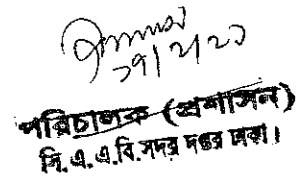 ২৭/২/২০
পরিচালক (প্রশাসন)
সি.এ.এ.বি.সদর দপ্তর ঢাকা।